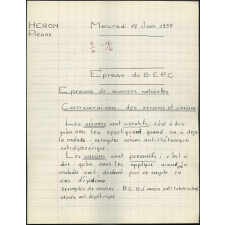 HEROM
Pierre
Mercredi 18 Juin 1958
Epreuve de B.E.P.C.
Epreuve de sciences naturelles
Comparaison des sérums et vaccins
Les sérums sont curatifs, c'est à dire
qu'on nous les applique quand on a déjà
la maladie. exemples sérum antitétanique
antidiphtérique.
Les vaccins sont préventifs, c'est à
dire qu'on nous les applique quand la
maladie sont évitent par ce compte en
cas d'épidémie
exemples de vaccins: B.C.G. vaccin antituberculeux
vaccin antidiphtérique